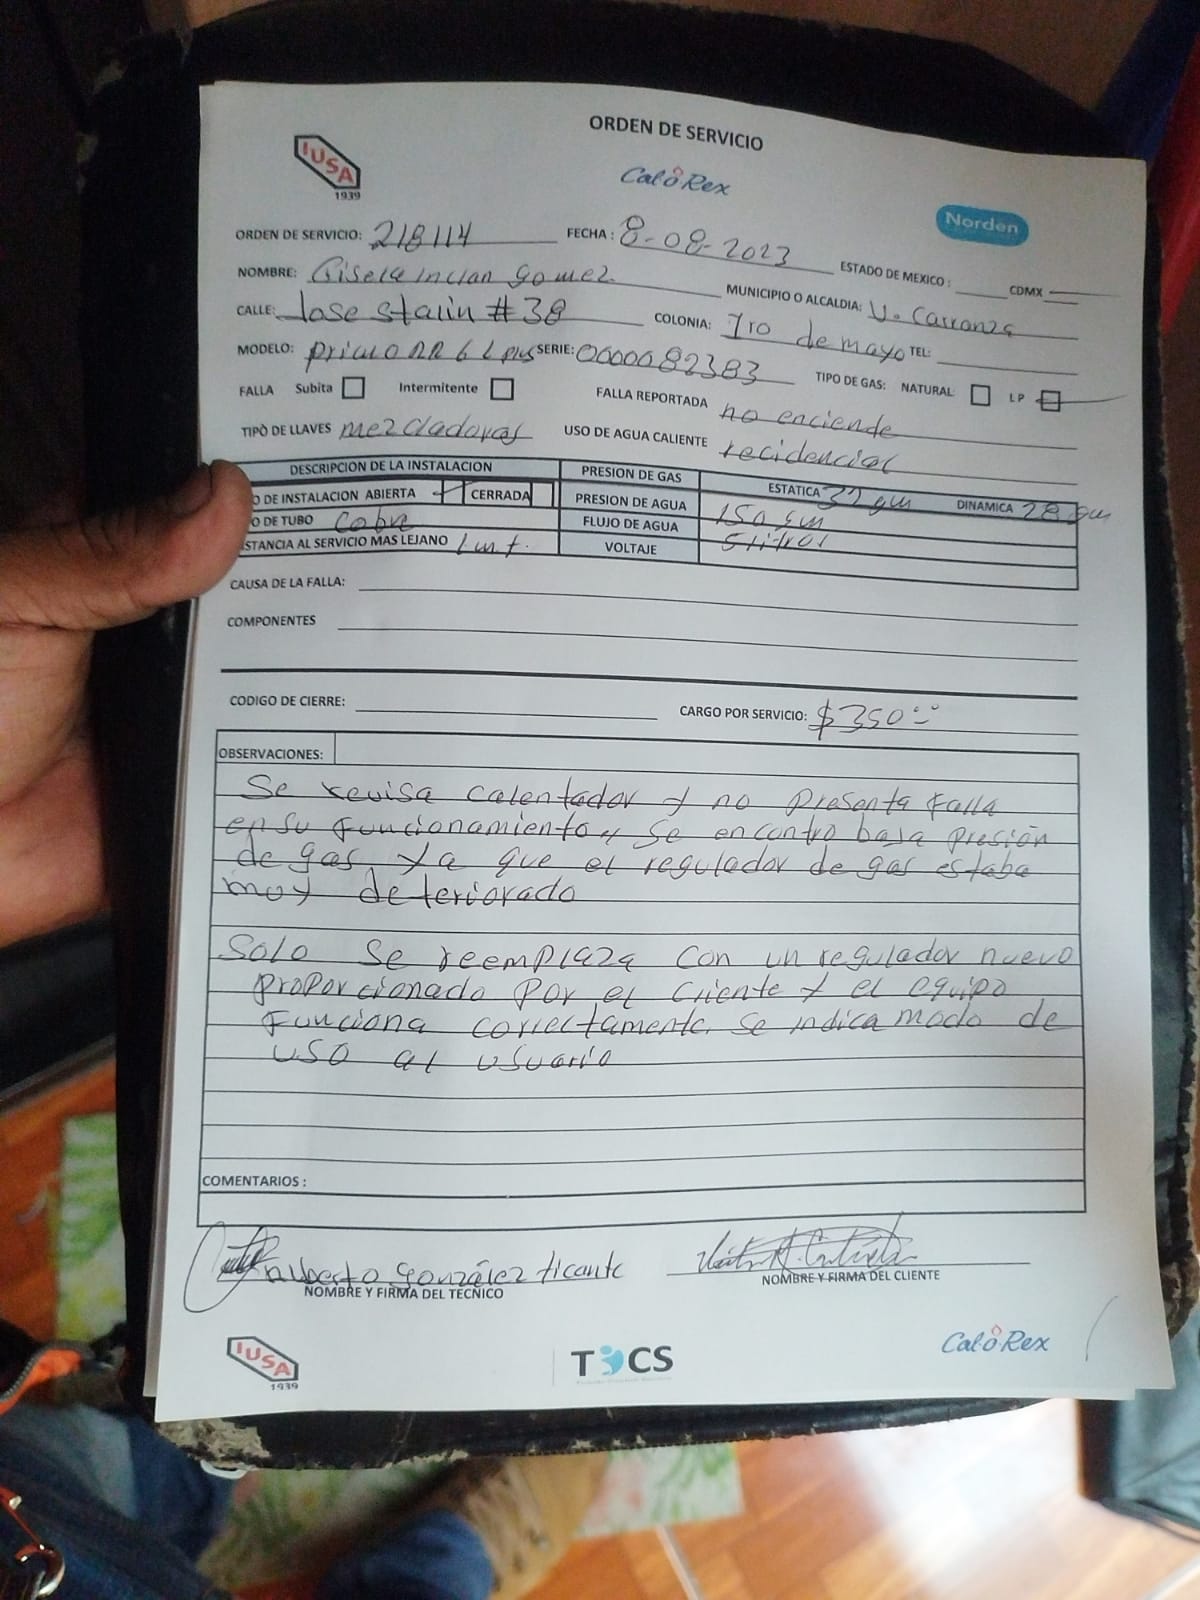 ORDEN DE SERVICIO
IUSA
1939
CaloRex
Norden
ORDEN DE SERVICIO: 218114 FECHA: 8-08-2023
ESTADO DE MEXICO: CDMX
NOMBRE: Gisela Inclan Gomez MUNICIPIO O ALCALDIA: V. Carranza
CALLE: Jose Stalin #38 COLONIA: 1ro de mayo TEL:
MODELO: plus SERIE: 0000082383 TIPO DE GAS: NATURAL LP
FALLA Subita Intermitente FALLA REPORTADA no enciende
TIPO DE LLAVES mezcladoras USO DE AGUA CALIENTE recidencial
DESCRIPCION DE LA INSTALACION PRESION DE GAS ESTÁTICA gm DINAMICA 28 gm
O DE INSTALACION ABIERTA CERRADA PRESION DE AGUA 150 gm
O DE TUBO Cobre FLUJO DE AGUA 5 litros
STANCIA AL SERVICIO MAS LEJANO VOLTAJE
CAUSA DE LA FALLA:
COMPONENTES
CODIGO DE CIERRE: CARGO POR SERVICIO: $350
OBSERVACIONES:
Se revisa calentador y no presenta falla
en su funcionamiento, se encontro baja presión
de gas ya que el regulador de gas estaba
muy deteriorado
Solo se reemplaza con un regulador nuevo
proporcionado por el cliente y el equipo
funciona correctamente. se indica modo de
uso al usuario
COMENTARIOS:
Alberto González ticante
NOMBRE Y FIRMA DEL TECNICO
NOMBRE Y FIRMA DEL CLIENTE
IUSA
1939
TOCS
CaloRex